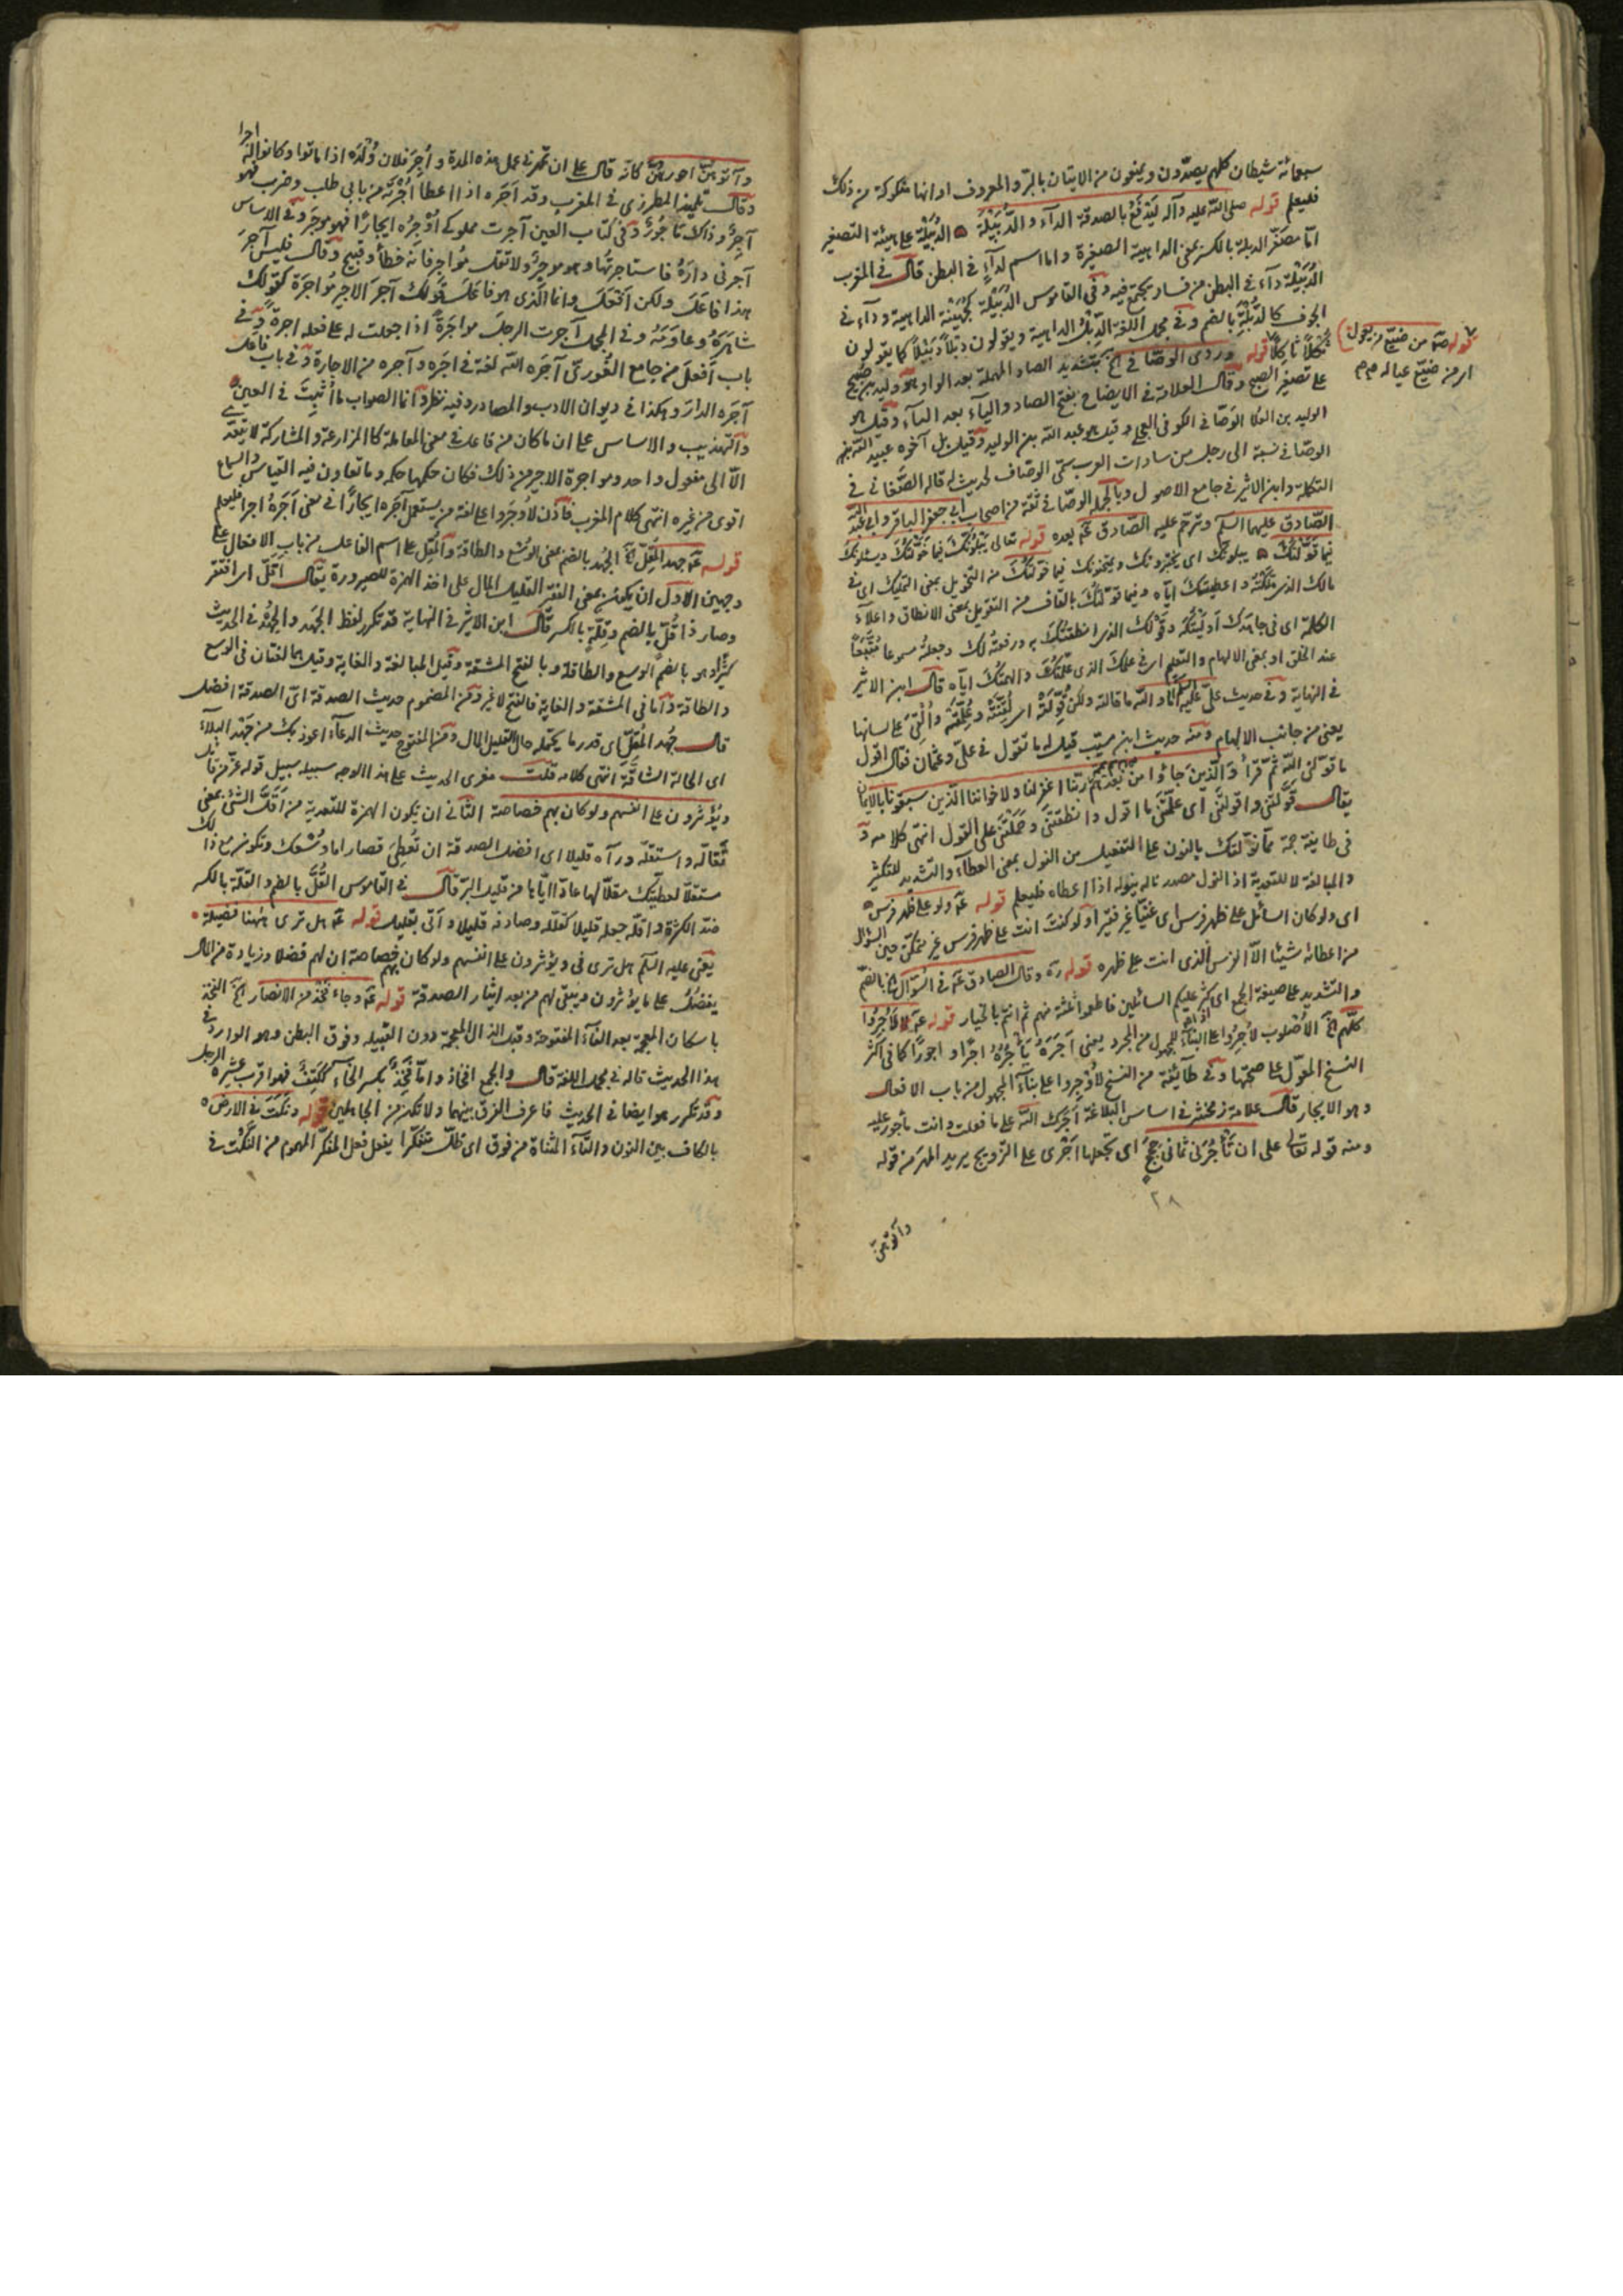 سبعمائة شيطان كلهم يصدّون ويمنعون من الاتيان بالبرّ والمعروف او انها مشكوكة من ذلك
فليعلم قوله صلى الله عليه وآله ليدفع بالصدقة الدآء والدُّبَيْلَة ه الدُّبَيْلَة على هيئة التصغير
امّا مصغّر الدبلة بالكسر بمعنى الداهية الصغيرة واما اسم لدآء في البطن قال في المغرب
الدُّبَيْلَة دآء في البطن من فساد يجتمع فيه وفي القاموس الدُّبَيْلَة كجُهَيْنَة الداهية ودآء في
الجوف كالدُّبْلَة بالضم وفي مجمل اللغة الدِّبْل الداهية ويقولون دِبْلاً دَبِيْلاً كما يقولون
ثُكْلاً ثَاكِلاً قوله وروى الوصّافي الخ بتشديد الصاد المهملة بعد الواو هو وليد بن صُبَيح
على تصغير الصبح وقال العلامة في الايضاح بفتح الصاد والياء بعد الباء وقيل هو
الوليد بن العلا الوَصّافي الكوفي العجلي وقيل هو عبد الله بن الوليد وقيل بل آخوه عبيد الله بن
الوصّافي نسبة الى رجل من سادات العرب سمّى الوصّاف لحديث له قاله الصَّغَاني في
التكملة وابن الاثير في جامع الاصول وبالجملة الوصّافي ثقة من اصحاب ابي جعفر الباقر وابي عبد الله
الصّادق عليهما السلم وترحّم عليه الصّادق عَه بعده قوله تعالى يَبْلُونَّكَ فيما خَوَّلْتُكَ ويسئلونكَ
فيما نَوَّلْتُكَ ه يبلونك اى يختبرونك ويمتحنونك فيما خوّلتك من التخويل بمعنى التمليك اى في
مالك الذى ملّكتُه واعطيتك ايّاه وفيما قوّلتُك بالقاف من التقويل بمعنى الانطاق واعلآء
الكلمة اى في جاهك الذى اَوليتُكه وقولك الذى انطقتُك به ورفعتُه لك وجعلتُه مسموعا مُتّبعًا
عند الخلق او بمعنى الالهام والتعليم اى في علمك الذى علّمتُك والهمتُك ايّاه قال ابن الاثير
في النهاية وفي حديث علىّ عليه السلم اما والله ما قالته ولكن قُوِّلَتْهُ اى لُقِّنَتْهُ وعُلِّمَتْهُ واُلْقِىَ على لسانها
يعنى من جانب الالهام ومنه حديث ابن مسيّب قيل له ما تقول في علىّ وعثمان فقال اقول
ما قوّلنى الله ثمّ قرأ وَالّذين جَاؤا من بَعدهم يقولون ربّنا اغفر لنا ولاخواننا الّذين سبقونا بالايمان
يقال قَوّلتَنى واقولتَنى اى علّمتَنى ما اقول وانطقتَنى وحَملتَنى على القول انتهى كلامه و
في طايفة جمة ممّا نوّلتك بالنون على التفعيل من النول بمعنى العطآء والتشديد للتكثير
والمبالغة لا للتعدية اذ النول مصدر ناله ينوله اذا اعطاه فليعلم قوله عَه ولو على ظهر فرس ه
اى ولو كان السائل على ظهر فرس اى غنيّا غير فقير او لو كنتَ انت على ظهر فرس غير متمكّن حين السؤال
من اعطائه شيئا الّا الفرس الذى انت على ظهره قوله رَه وقال الصادق عَه في السُؤّال الخ بالضمّ
والتشديد على صيغة الجمع اى كثر عليكم السائلين فاطعموا ثلثة منهم ثم انتم بالخيار قوله عَه لاُوْجِرُوا
كلّهم الخ الاصوب لاُجِرُوا على البناء للمجهول من المجرد يعنى اَجَرَهُ يَأْجُرُهُ اجرًا واجورًا كما في اكثر
النسخ المعوّل على صحّتها وفي طآئفة من النسخ لاُوجِروا على بناء المجهول من باب الافعال
وهو الايجار قال علامة زمخشر في اساس البلاغة آجرك الله على ما فعلت وانت مأجور عليه
ومنه قوله تعالى على ان تَأْجُرَنى ثمانىَ حِجَج اى تجعلها اَجْرى على التّزويج يريد المهر من قوله
٢٨
وآتوهنّ
قوله صَه من ضيّع من يعول
اى من ضيّع عياله م م
وآتوهنّ اجورهنّ كانه قال على ان تمهرنى عمل هذه المدة واُجِرَ فلان وُلْدَه اذا ماتوا وكانوا له اجرا
وقال تلميذه المطرزى في المغرب وقد اَجَره اذا اعطاه اُجْرَتَه من بابى طلب وضرب فهو
آجِرٌ وذاك مَأجُورٌ وفي كتاب العين آجرت مملوكى اُوْجِرُه ايجارًا فهو مُوجَر وفي الاساس
آجرنى دارَهُ فاستاجرتُها وهو موجِرٌ ولا تقل مُؤاجر فانه خطأ وقبيح وقال فليس آجَرَ
هذا فاعَلَ ولكن اَفْعَلَ وانما الّذى هو فاعَلَ قولك آجَرَ الاجير مُؤاجَرَةً كقولك
شاهَرَهُ وعاوَمَهُ وفي المجمل آجرت الرجل مواجَرَةً اذا جعلت له على فعله اجرة وفي
باب اَفْعَلَ من جامع الغُورىّ آجَرَه الله لغة في اجَره وآجره من الاجارة وفي باب فاعَلَ
آجَره الدارَ وهكذا في ديوان الادب والمصادر وفيه نظر وانما الصواب ما اُثْبِتَ في العين
والتهذيب والاساس على ان ما كان من فاعل في معنى المعاملة كالمزارعة والمشاركة لا يتعدّى
الّا الى مفعول واحد ومواجرة الاجير من ذلك فكان حكمها حكمه وما تعاون فيه القياس والسماع
اقوى من غيره انتهى كلام المغرب فاذن لاُوجِرَوا على لغة من يستعمل آجره ايجارًا في معنى اَجَرَهُ اجرا فليعلم
قوله عَه جهد المُقِلّ الخ الجُهد بالضم بمعنى الوُسْع والطاقة والمُقِلّ على اسم الفاعل من باب الافعال على
وجهين الاول ان يكون بمعنى الفقير القليل المال على اخذ الهمزة للصيرورة يقال اَقَلَّ اى افتقر
وصار ذا قُلّ بالضم وقِلَّةٍ بالكسر قال ابن الاثير في النهاية قد تكرر لفظ الجَهد والجُهد في الحديث
كثيرًا وهو بالضم الوسع والطاقة وبالفتح المشقة وقيل المبالغة والغاية وقيل هما لغتان في الوسع
والطاقة فامّا في المشقة والغاية فالفتح لا غير ومن المضموم حديث الصدقة اىّ الصدقة افضل
قال جُهد المُقِلّ اى قدر ما يحتمله حال القليل المال ومن المفتوح حديث الدعآء اعوذ بك من جَهد البلآء
اى الحالة الشاقّة انتهى كلامه قلت مغزى الحديث على هذا الوجه سبيله سبيل قوله عزّ من قائل
ويُؤثرون على انفسهم ولو كان بهم خصاصة الثانى ان يكون الهمزة للتعدية من اَقَلَّ الشئ بمعنى
تَقَالّه واستقلّه ورآه قليلا اى افضل الصدقة ان تُعطِىَ قصارا ما وُسْعِك وتكون مع ذلك
مستقلّا لعطيّتك مقلّا لها عادّا ايّاها من قليل البرّ قال في القاموس القُلّ بالضم والقلّة بالكسر
ضدّ الكثرة واقلّه جعله قليلا كقلّله وصادفه قليلا واتى بقليل قوله عَه هل ترى هٰهنا فضيلة ه
يعنى عليه السلم هل ترى في ويؤثرون على انفسهم ولو كان بهم خصاصة ان لهم فضلا وزيادة من المال
يفضُلُ على ما يؤثرون ويبقى لهم من بعد ايثار الصدقة قوله عَه وجاء فَخْذ من الانصار الخ الفَخْذ
باسكان المعجمة بعد الفآء المفتوحة وقبل الذال المعجمة دون القبيلة وفوق البطن وهو الوارد في
هذا الحديث قاله في مجمل اللغة قال والجمع افخاذ وامّا فَخِذٌ بكسر الخآء ككَتِفٍ فهو اقرب عشيرة الرجل
وقد تكرر هو ايضا في الحديث فاعرف الفرق بينهما ولا تكن من الجاهلين قوله ونَكَتَ في الارض ه
بالكاف بين النون والتآء المثناة من فوق اى ظلّ متفكّرا يفعل فعل المفكّر المهموم من النَكْت في